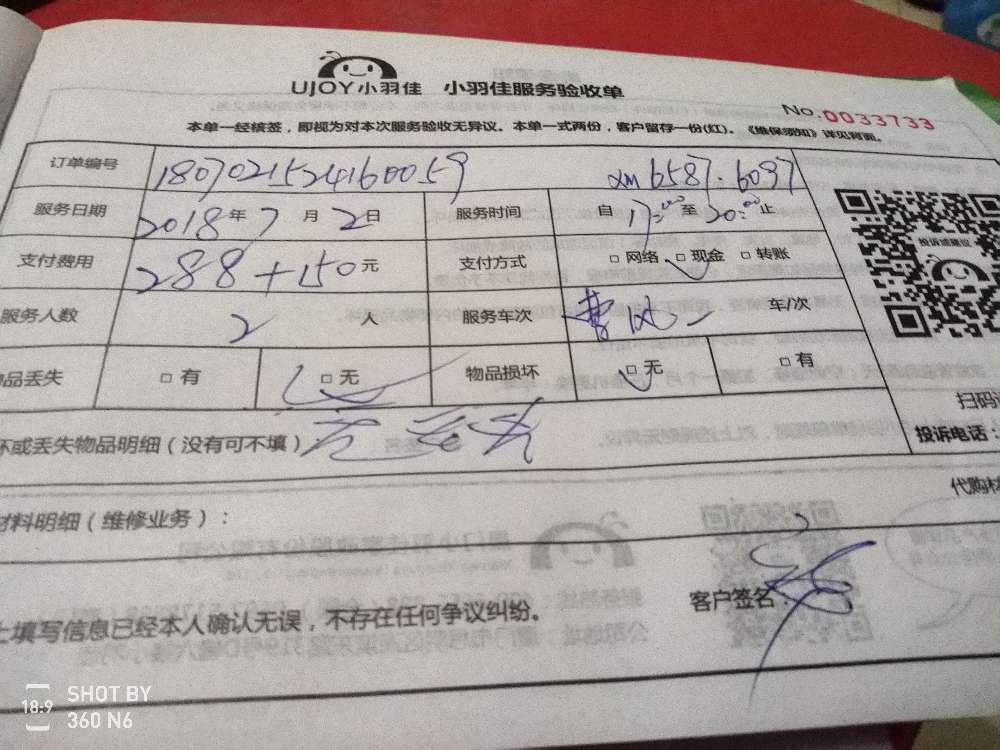 UJOY小羽佳 小羽佳服务验收单
No.0033733
本单一经核签，即视为对本次服务验收无异议。本单一式两份，客户留存一份(红)。《维保须知》详见背面。
订单编号 1807021524160059 6587.6097
服务日期 2018年7月2日 服务时间 自17:00至20:00止
支付费用 288+150元 支付方式 □网络 □现金 □转账
服务人数 2人 服务车次 车/次
品丢失 □有 □无 物品损坏 □无 □有
坏或丢失物品明细（没有可不填）：
投诉或建议
扫码
投诉电话
材料明细（维修业务）：
代购材
上填写信息已经本人确认无误，不存在任何争议纠纷。 客户签名：
18:9 SHOT BY
360 N6